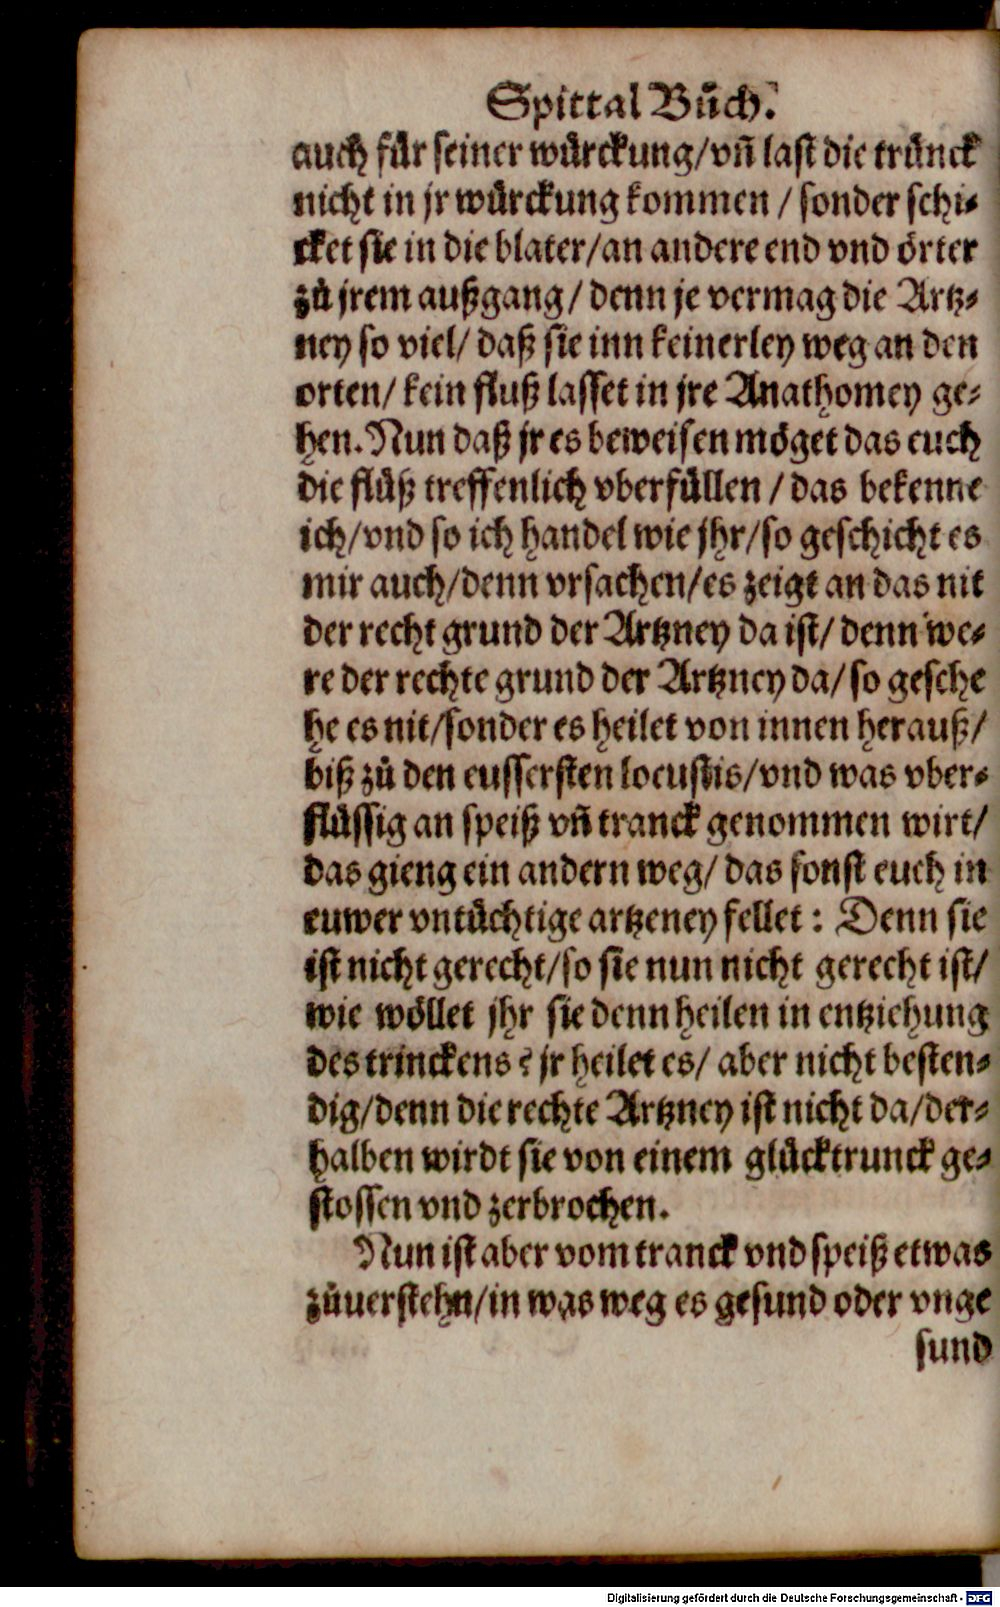 Spittal Bůch.
auch für seiner würckung/vñ last die trünck
nicht in jr würckung kommen / sonder schi-
cket sie in die blater/an andere end vnd örter
zů jrem außgang/ denn je vermag die Artz-
ney so viel/ daß sie inn keinerley weg an den
orten/ kein fluß lasset in jre Anathomey ge-
hen. Nun daß jr es beweisen möget das euch
die flüß treffenlich vberfüllen / das bekenne
ich/vnd so ich handel wie jhr/so geschicht es
mir auch/denn vrsachen/es zeigt an das nit
der recht grund der Artzney da ist/ denn we-
re der rechte grund der Artzney da/ so gesche
he es nit/sonder es heilet von innen herauß/
biß zů den eussersten locustis/vnd was vber-
flüssig an speiß vñ tranck genommen wirt/
das gieng ein andern weg/ das sonst euch in
euwer vntüchtige artzeney fellet : Denn sie
ist nicht gerecht/so sie nun nicht gerecht ist/
wie wöllet jhr sie denn heilen in entziehung
des trinckens? jr heilet es/ aber nicht besten-
dig/denn die rechte Artzney ist nicht da/der-
halben wirdt sie von einem glücktrunck ge-
stossen vnd zerbrochen.
Nun ist aber vom tranck vnd speiß etwas
zůuerstehn/in was weg es gesund oder vnge
sund
Digitalisierung gefördert durch die Deutsche Forschungsgemeinschaft - DFG